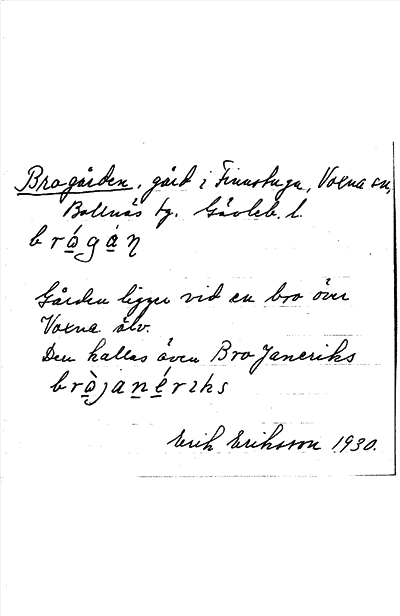 Brogården, gård i Finnstuga, Voxna sn,
Bollnäs tg. Gävleb. l.
brǻgàn
Gården ligger vid en bro över
Voxna älv.
Den kallas även Bro Janeriks
bròjanériks
Erik Eriksson 1930.